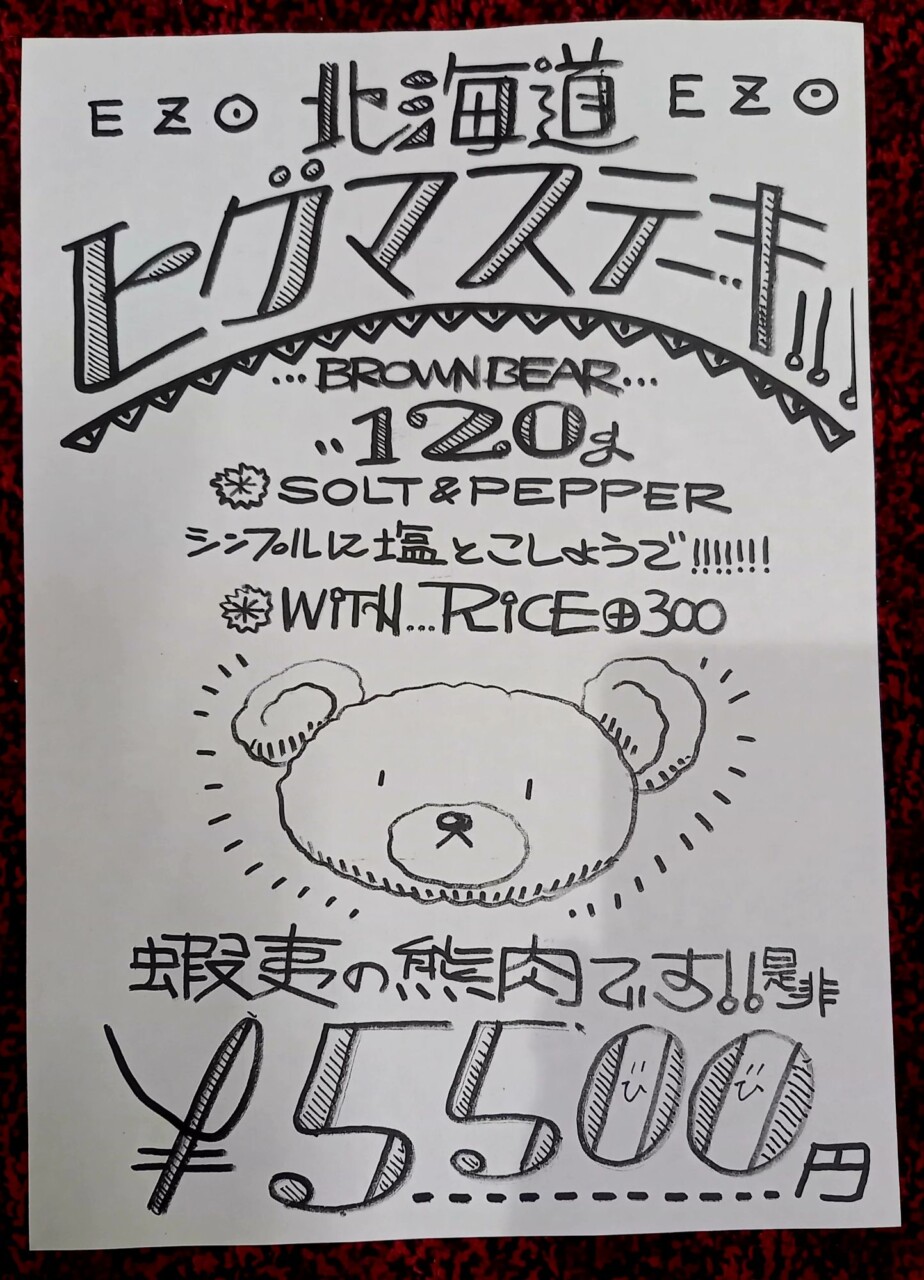 EZO 北海道 EZO
ヒグマステーキ!!!
...BROWN BEAR...
120g
SOLT & PEPPER
シンプルに塩とこしょうで!!!!!!!
WITH...RICE⊕300
蝦夷の熊肉です!!是非
¥5500円
びび